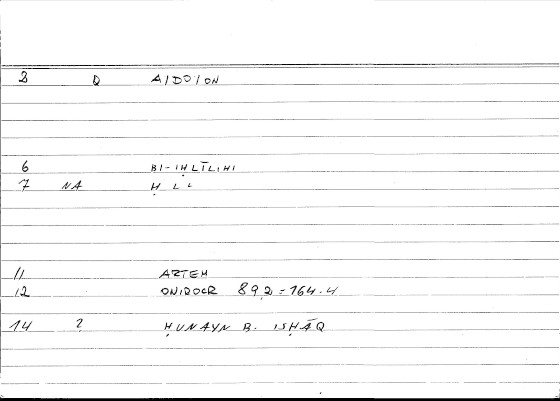 2 Q AIDOION
6 BI-IḤLĪLIHI
7 NA Ḥ L L
11 ARTEM
12 ONIROCR 89,2 = 164.4
14 2 ḤUNAYN B. ISḤĀQ